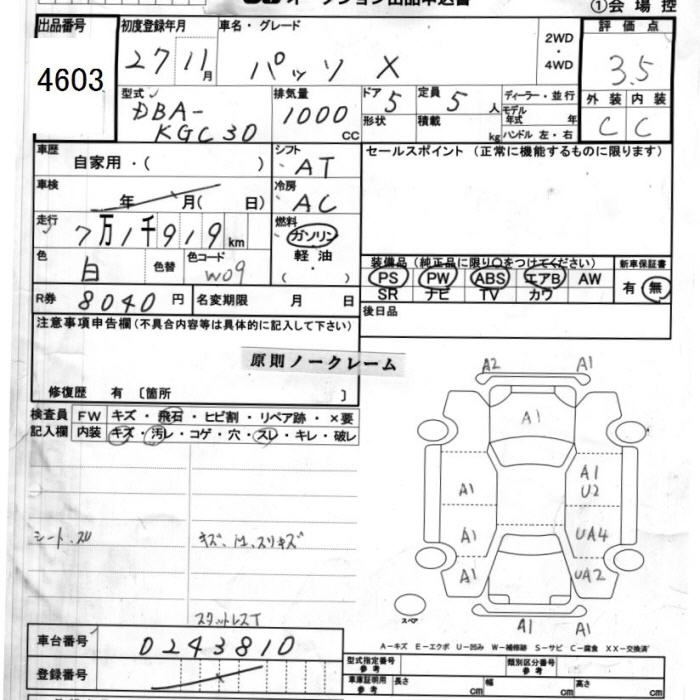 オークション出品申込書
①会場控
出品番号 初度登録年月 車名・グレード 2WD・4WD 評価点
4603 27 11月 パッソ X 3.5
型式 排気量 ドア 5 定員 5人 ディーラー・並行 外装 内装
DBA-KGC30 1000cc 形状 積載 kg モデル年式 年 ハンドル 左・右 C C
車歴 自家用・( ) シフト AT セールスポイント (正常に機能するものに限ります)
車検 年 月( 日) 冷房 AC
走行 7万1千919km 燃料 ガソリン 軽油・( )
色 白 色替 色コード W09 装備品 (純正品に限り○をつけてください) 新車保証書
PS PW ABS エアB AW 有 無
R券 8040円 名変期限 月 日 SR ナビ TV カワ
注意事項申告欄(不具合内容等は具体的に記入して下さい) 後日品
原則ノークレーム
修復歴 有 〔箇所 〕
検査員 FW キズ・飛石・ヒビ割・リペア跡・×要
記入欄 内装 キズ・汚レ・コゲ・穴・スレ・キレ・破レ
A2 A1
A1
A1 A1 U2
A1 UA4
A1 UA2
シート、スレ
スタットレスT
スペア A1 A1
A-キズ E-エクボ U-凹み W-補修跡 S-サビ C-腐食 XX-交換済
車台番号 0243810
型式指定番号 参考 類別区分番号 参考
登録番号 車庫証明用 参考 長さ cm 幅 cm 高さ cm